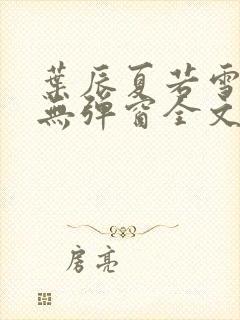 葉辰夏若雪
無彈窗全文
房亮